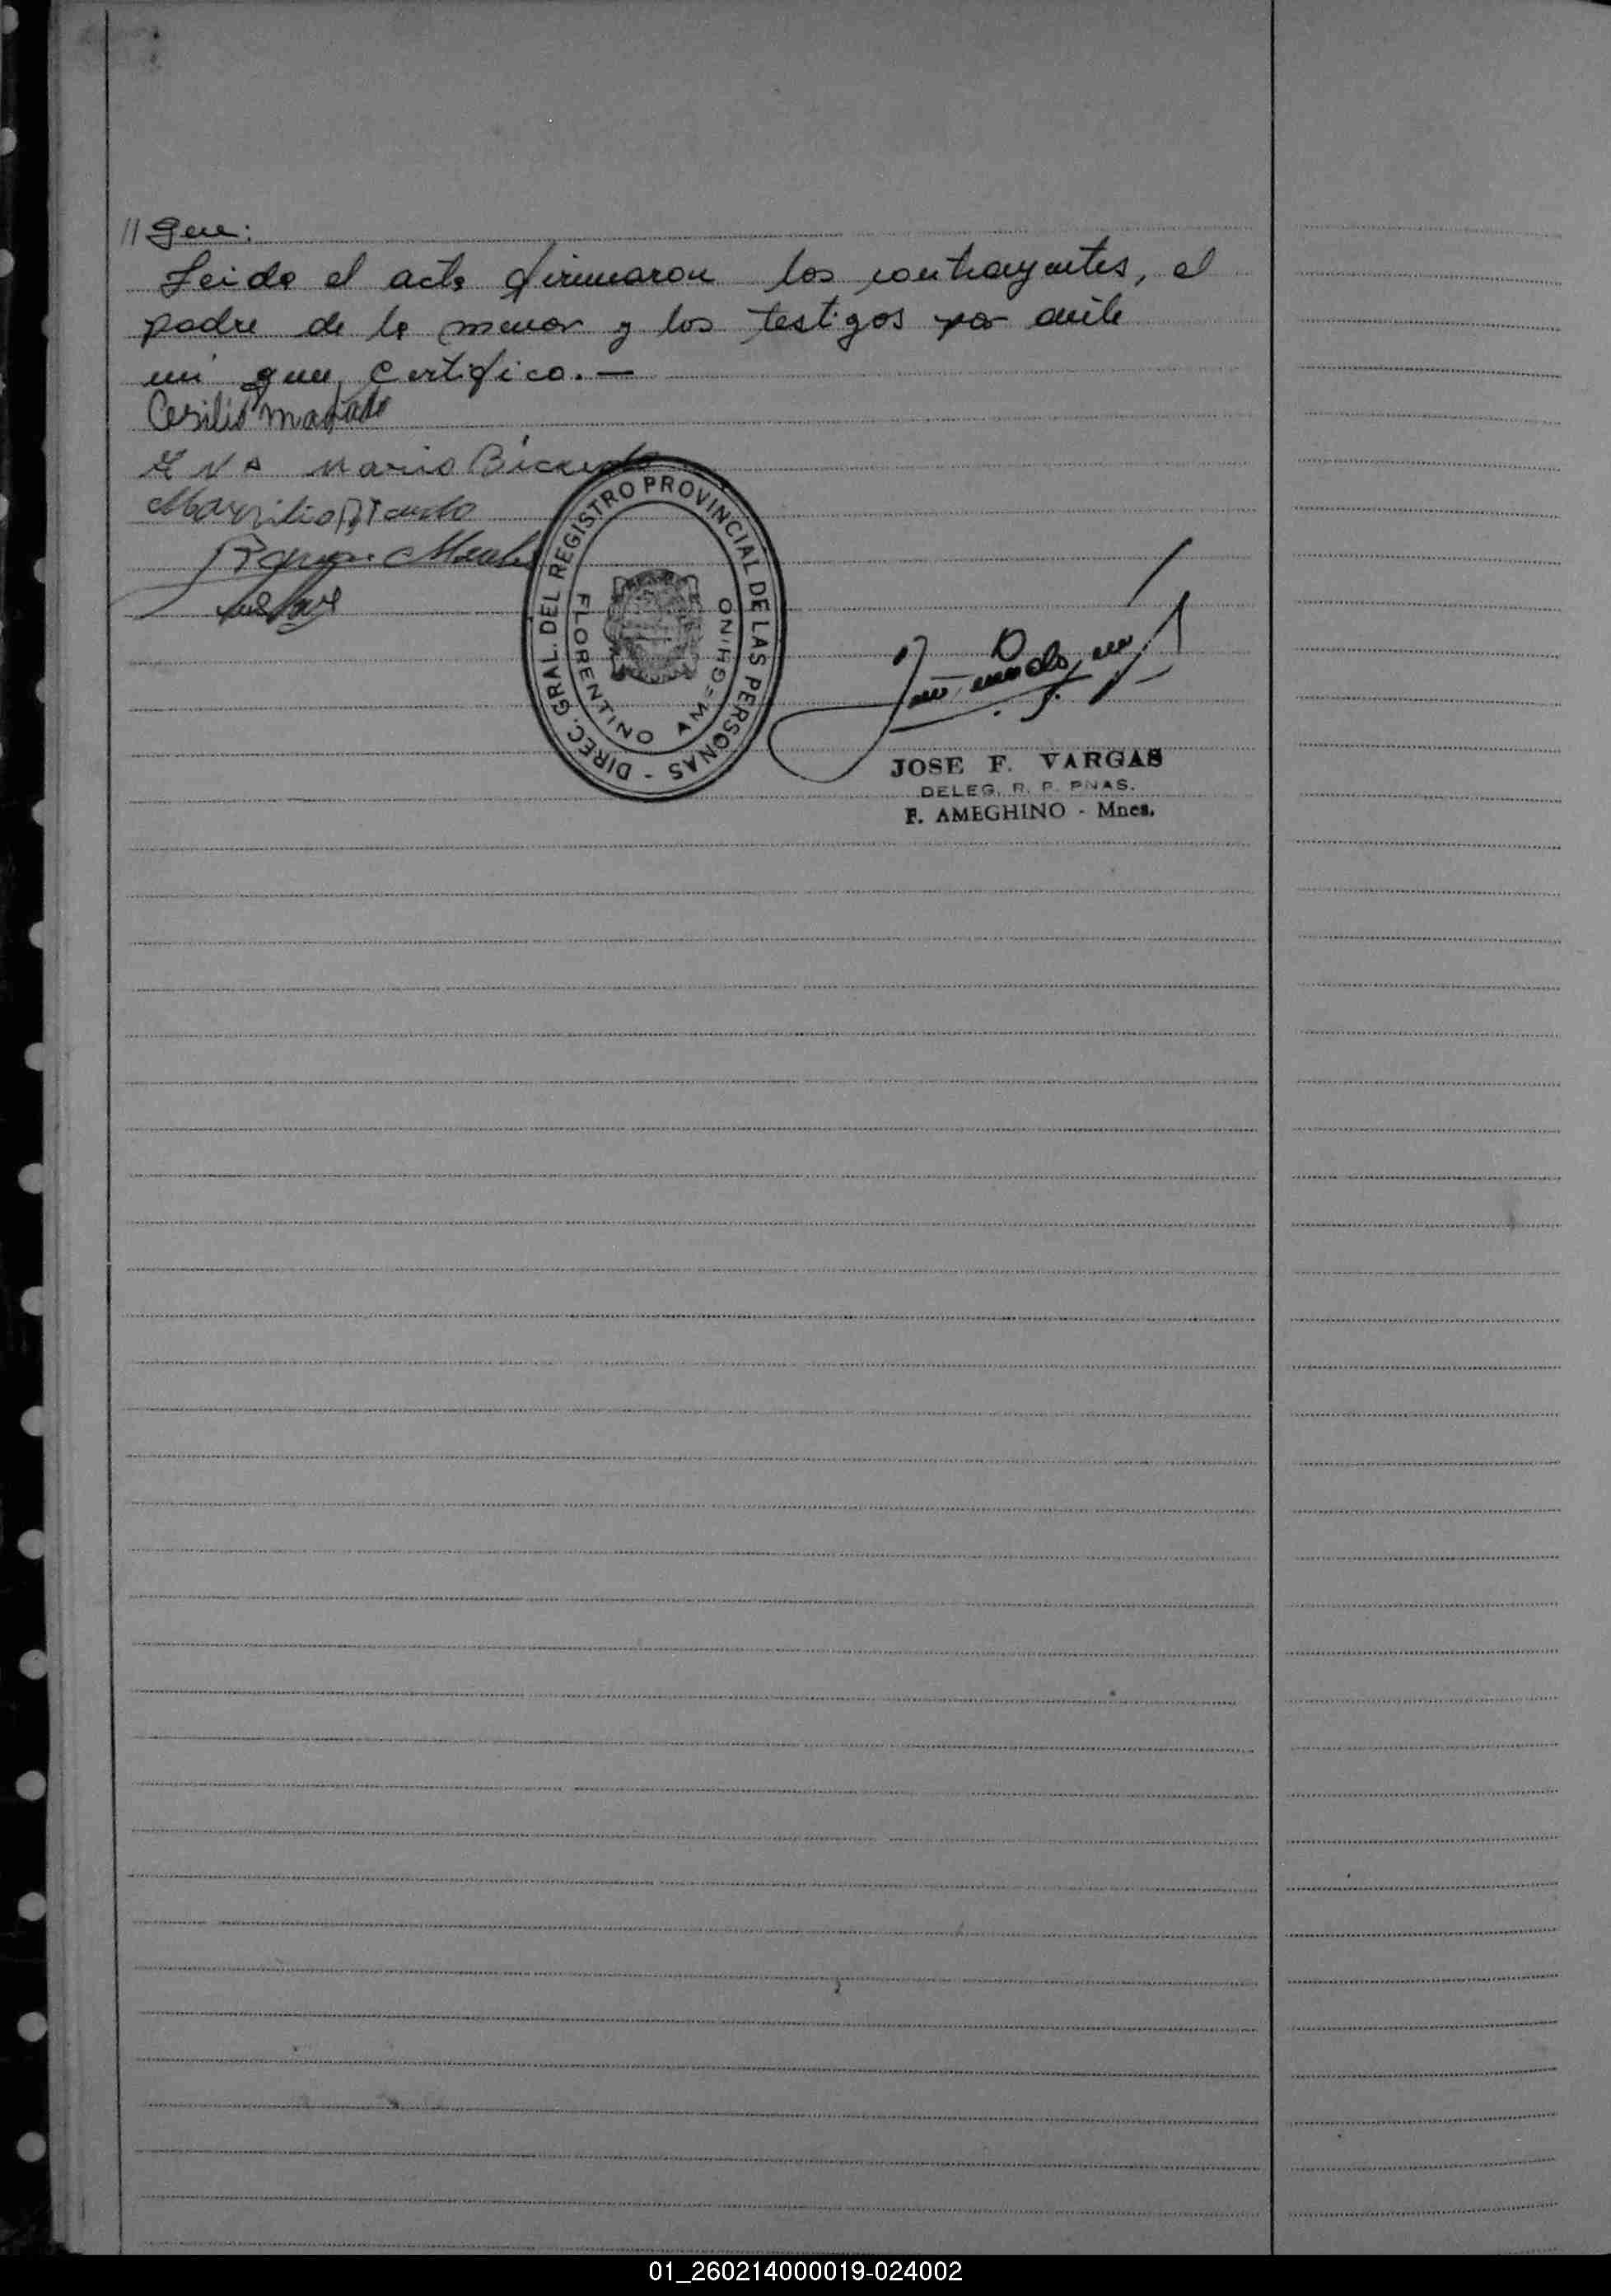 // que:
Leido el acta firmaron los contrayentes, el
padre de la menor y los testigos por ante
mi que certifico. —
Cesilio
Mario
DIREC. GRAL. DEL REGISTRO PROVINCIAL DE LAS PERSONAS -
FLORENTINO AMEGHINO
JOSE F. VARGAS
DELEG. R. P. PNAS.
F. AMEGHINO - Mnes.
01_260214000019-024002